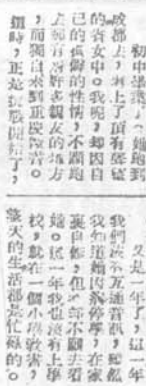 初中畢業，她跑到
成都去，考上了頂有聲望
的貴女中。我呢，却因自
己的孤僻的性情，不願跑
上都有許多親友的地方
，而獨自來到重慶讀書。
這時，正是抗戰開始了，
又是一年了，這一年
我們沒有互通音訊，輾轉
我知道她因病停學，在家
裏自修，但又都不願去看
她。這一年我也沒有上學
校，就在一個小學敎書，
整天的生活都是忙碌的。